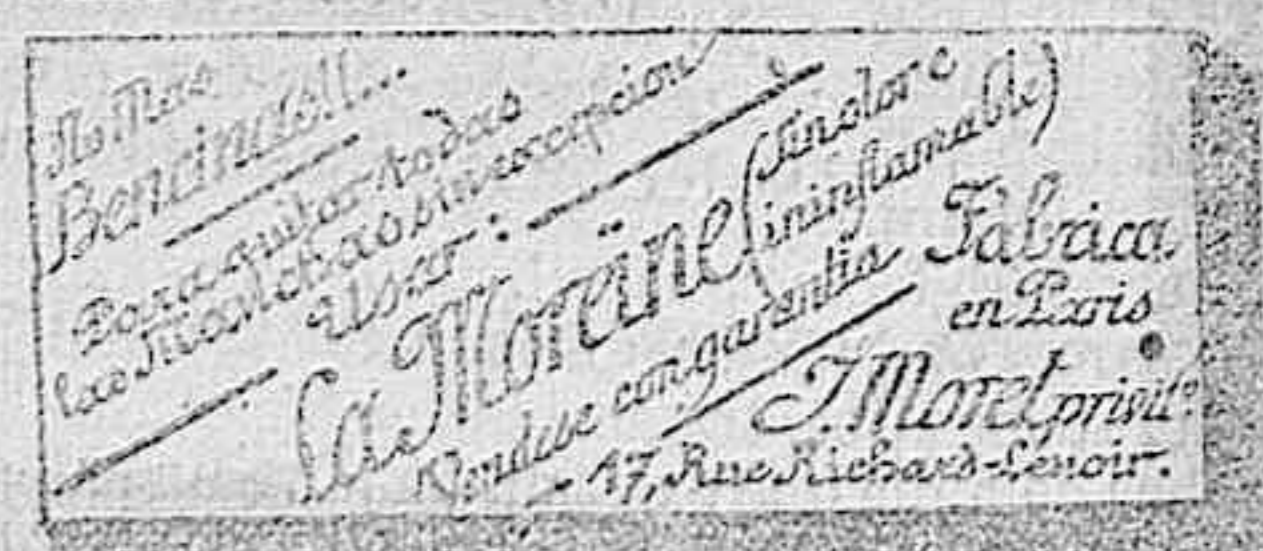 No Mas
Bencina!!!...
Para quitar todas
las Manchas sin excepcion
usar:
La Moreïne (Sin olor e
ininflamable)
Vendese con garantia
Fabrica
en Paris
J. Moret privil.º
17, Rue Richard-Lenoir.